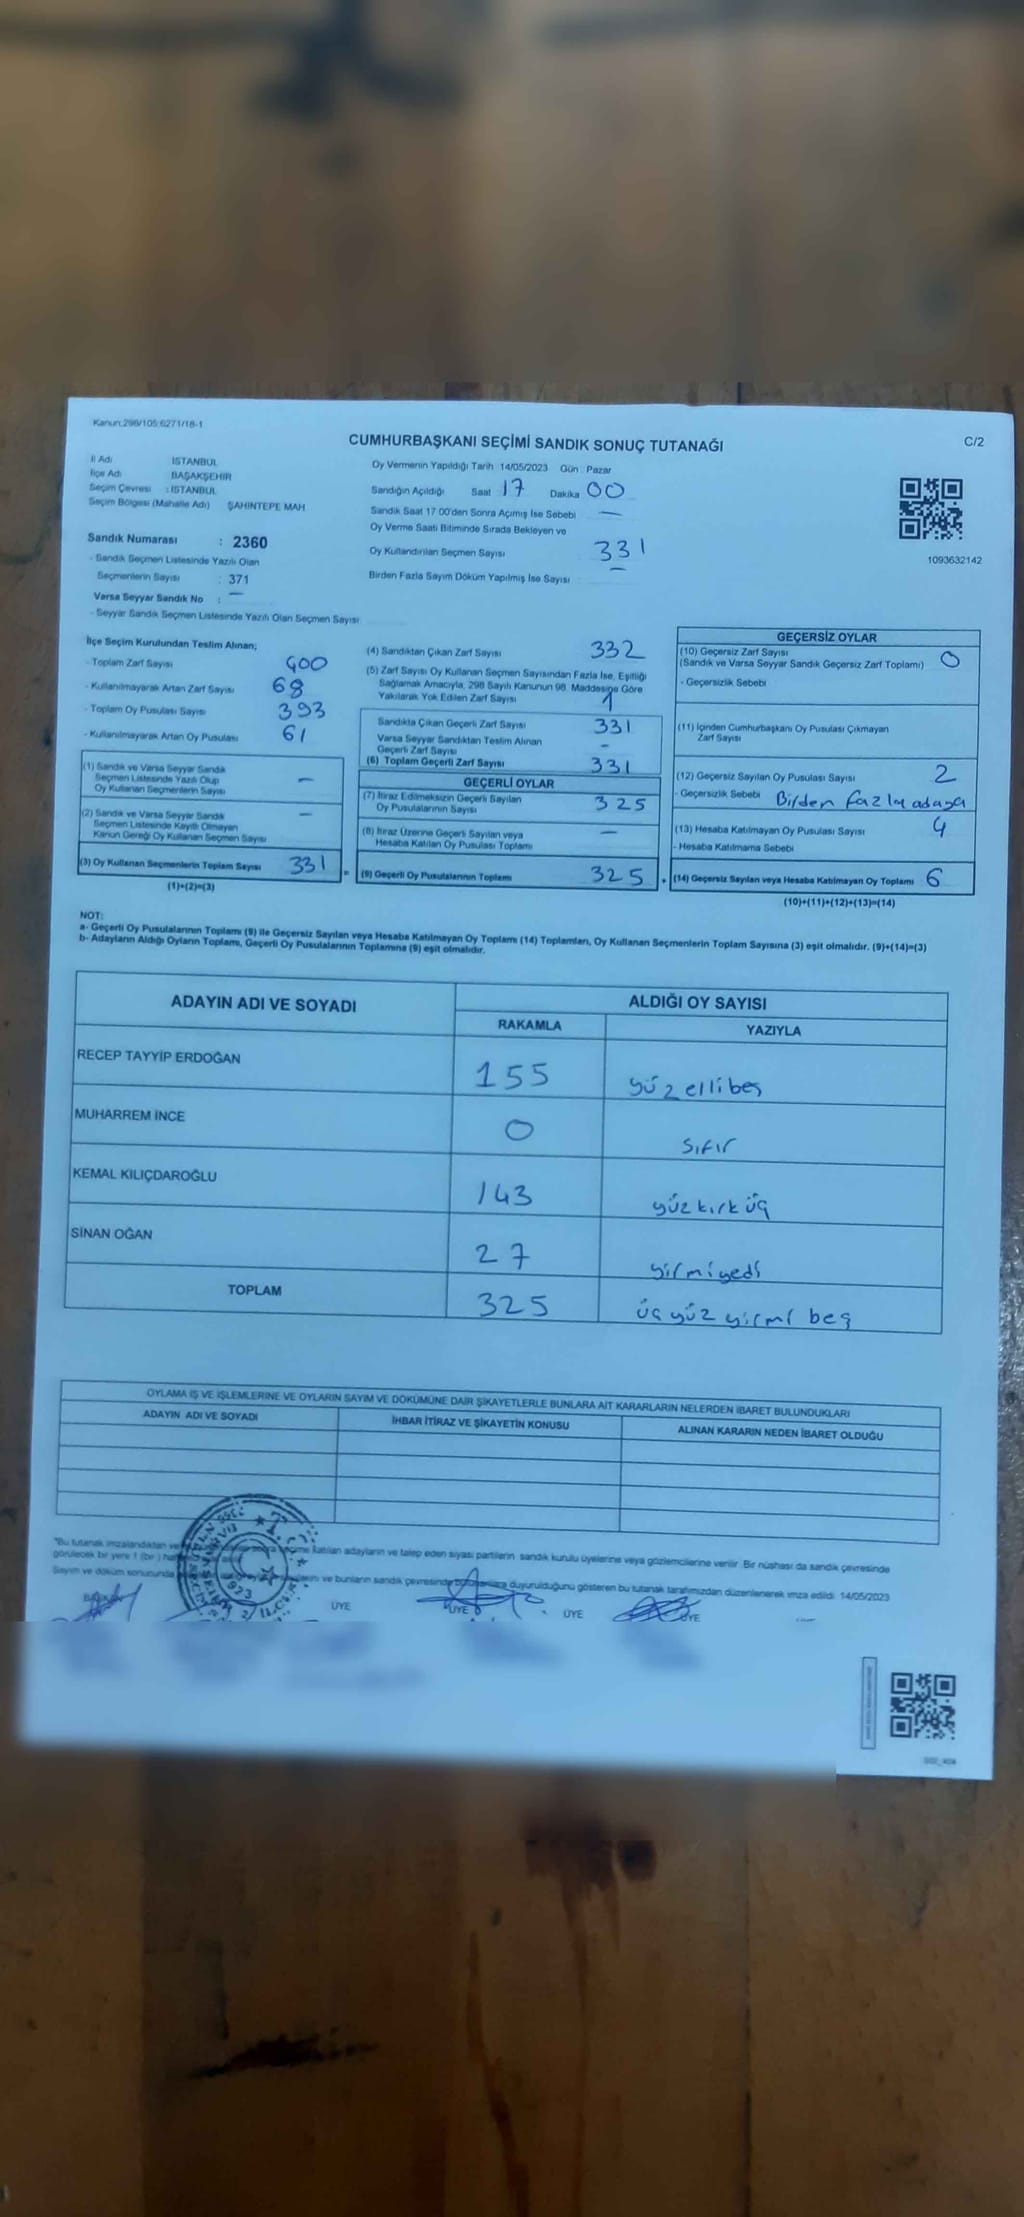 Kanun:298/105;6271/18-1
CUMHURBAŞKANI SEÇİMİ SANDIK SONUÇ TUTANAĞI
C/2
İl Adı İSTANBUL
İlçe Adı BAŞAKŞEHİR
Seçim Çevresi : İSTANBUL
Seçim Bölgesi (Mahalle Adı) ŞAHİNTEPE MAH
Sandık Numarası : 2360
- Sandık Seçmen Listesinde Yazılı Olan
Seçmenlerin Sayısı : 371
Varsa Seyyar Sandık No : —
- Seyyar Sandık Seçmen Listesinde Yazılı Olan Seçmen Sayısı
Oy Vermenin Yapıldığı Tarih 14/05/2023 Gün : Pazar
Sandığın Açıldığı Saat 17 Dakika 00
Sandık Saat 17:00'den Sonra Açımış İse Sebebi —
Oy Verme Saati Bitiminde Sırada Bekleyen ve
Oy Kullandırılan Seçmen Sayısı 331
Birden Fazla Sayım Döküm Yapılmış İse Sayısı : —
1093632142
İlçe Seçim Kurulundan Teslim Alınan;
- Toplam Zarf Sayısı 400
- Kullanılmayarak Artan Zarf Sayısı 68
- Toplam Oy Pusulası Sayısı 393
- Kullanılmayarak Artan Oy Pusulası 61
(1) Sandık ve Varsa Seyyar Sandık
Seçmen Listesinde Yazılı Olup
Oy Kullanan Seçmenlerin Sayısı —
(2) Sandık ve Varsa Seyyar Sandık
Seçmen Listesinde Kayıtlı Olmayan
Kanun Gereği Oy Kullanan Seçmen Sayısı —
(3) Oy Kullanan Seçmenlerin Toplam Sayısı 331
(1)+(2)=(3)
(4) Sandıktan Çıkan Zarf Sayısı 332
(5) Zarf Sayısı Oy Kullanan Seçmen Sayısından Fazla İse, Eşitliği
Sağlamak Amacıyla, 298 Sayılı Kanunun 98. Maddesine Göre
Yakılarak Yok Edilen Zarf Sayısı 1
Sandıkta Çıkan Geçerli Zarf Sayısı 331
Varsa Seyyar Sandıktan Teslim Alınan
Geçerli Zarf Sayısı -
(6) Toplam Geçerli Zarf Sayısı 331
GEÇERLİ OYLAR
(7) İtiraz Edilmeksizin Geçerli Sayılan
Oy Pusulalarının Sayısı 325
(8) İtiraz Üzerine Geçerli Sayılan veya
Hesaba Katılan Oy Pusulası Toplamı —
= (9) Geçerli Oy Pusulalarının Toplamı 325
GEÇERSİZ OYLAR
(10) Geçersiz Zarf Sayısı
(Sandık ve Varsa Seyyar Sandık Geçersiz Zarf Toplamı) 0
- Geçersizlik Sebebi
(11) İçinden Cumhurbaşkanı Oy Pusulası Çıkmayan
Zarf Sayısı
(12) Geçersiz Sayılan Oy Pusulası Sayısı 2
- Geçersizlik Sebebi Birden fazla adaya
(13) Hesaba Katılmayan Oy Pusulası Sayısı 4
- Hesaba Katılmama Sebebi
+ (14) Geçersiz Sayılan veya Hesaba Katılmayan Oy Toplamı 6
(10)+(11)+(12)+(13)=(14)
NOT:
a- Geçerli Oy Pusulalarının Toplamı (9) ile Geçersiz Sayılan veya Hesaba Katılmayan Oy Toplamı (14) Toplamları, Oy Kullanan Seçmenlerin Toplam Sayısına (3) eşit olmalıdır. (9)+(14)=(3)
b- Adayların Aldığı Oyların Toplamı, Geçerli Oy Pusulalarının Toplamına (9) eşit olmalıdır.
ADAYIN ADI VE SOYADI ALDIĞI OY SAYISI
RAKAMLA YAZIYLA
RECEP TAYYİP ERDOĞAN 155 yüz elli beş
MUHARREM İNCE 0 sıfır
KEMAL KILIÇDAROĞLU 143 yüz kırk üç
SİNAN OĞAN 27 yirmiyedi
TOPLAM 325 üç yüz yirmi beş
OYLAMA İŞ VE İŞLEMLERİNE VE OYLARIN SAYIM VE DÖKÜMÜNE DAİR ŞİKAYETLERLE BUNLARA AİT KARARLARIN NELERDEN İBARET BULUNDUKLARI
ADAYIN ADI VE SOYADI İHBAR İTİRAZ VE ŞİKAYETİN KONUSU ALINAN KARARIN NEDEN İBARET OLDUĞU
*Bu tutanak imzalandıktan ve katılan adayların ve talep eden siyasi partilerin sandık kurulu üyelerine veya gözlemcilerine verilir. Bir nüshası da sandık çevresinde
görülecek bir yere 1 (bir)
Sayım ve döküm sonucunda ve bunların sandık çevresinde duyurulduğunu gösteren bu tutanak tarafımızdan düzenlenerek imza edildi. 14/05/2023
BAŞKAN ÜYE ÜYE ÜYE ÜYE
1923